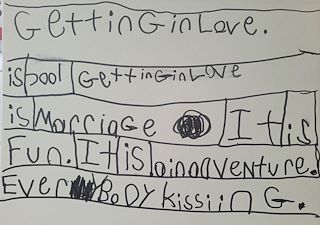 GettinG in Love.
is bool GettinG in Love
is MarriaGe It is
Fun. It is adventure.
EverBoDY kissiinG.